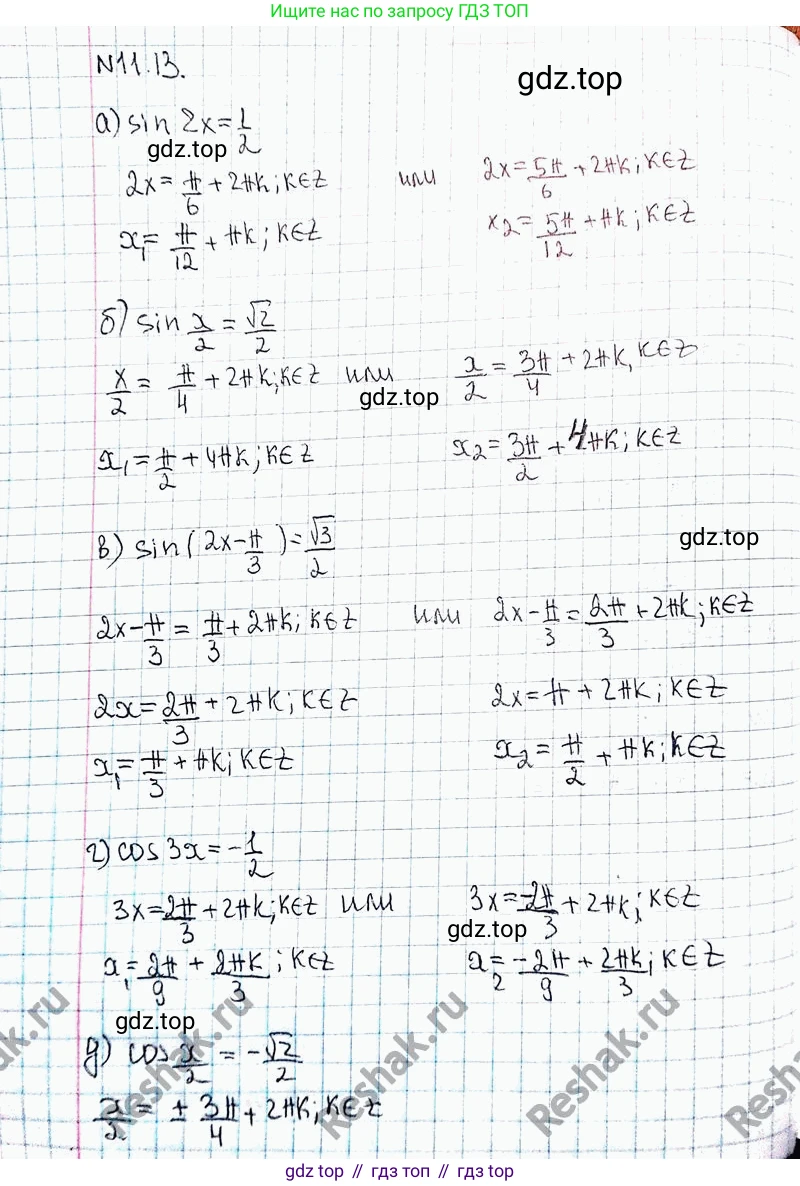 Ищите нас по запросу ГДЗ ТОП
N11.13.
gdz.top
а) sin 2x = 1/2
gdz.top
2x = π/6 + 2πk; k∈Z или 2x = 5π/6 + 2πk; k∈Z
x₁ = π/12 + πk; k∈Z x₂ = 5π/12 + πk; k∈Z
б) sin x/2 = √2/2
x/2 = π/4 + 2πk; k∈Z или x/2 = 3π/4 + 2πk, k∈Z
gdz.top
x₁ = π/2 + 4πk; k∈Z x₂ = 3π/2 + 4πk; k∈Z
в) sin(2x - π/3) = √3/2
gdz.top
2x - π/3 = π/3 + 2πk; k∈Z или 2x - π/3 = 2π/3 + 2πk; k∈Z
2x = 2π/3 + 2πk; k∈Z 2x = π + 2πk; k∈Z
x₁ = π/3 + πk; k∈Z x₂ = π/2 + πk; k∈Z
г) cos 3x = -1/2
3x = 2π/3 + 2πk; k∈Z или 3x = -2π/3 + 2πk; k∈Z
gdz.top
x₁ = 2π/9 + 2πk/3; k∈Z x₂ = -2π/9 + 2πk/3; k∈Z
gdz.top
д) cos x/2 = -√2/2
x/2 = ± 3π/4 + 2πk; k∈Z
Reshak.ru
Reshak.ru
Reshak.ru
gdz top // гдз топ // gdz top